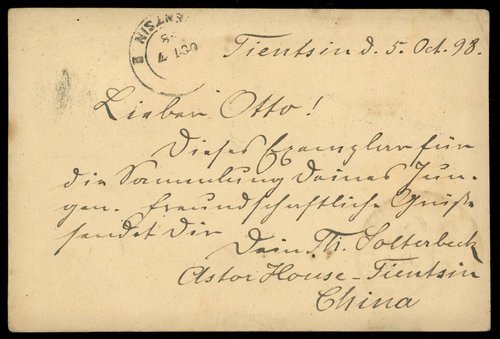 Tientsin d. 5. Oct. 98.
Lieber Otto!
Dieses Exemplar für
die Sammlung Deines Jun-
gen. Freundschaftliche Grüße
sendet Dir
Dein Th. Solterbeck
Astor House - Tientsin
China